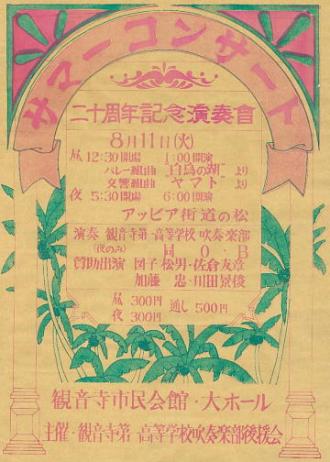 サマーコンサート
二十周年記念演奏會
8月11日(火)
昼 12:30開場 1:00開演
バレー組曲 "白鳥の湖" より
交響組曲 ヤマト より
夜 5:30開場 6:00開演
アッピア街道の松
演奏 観音寺第一高等学校 吹奏楽部
(夜のみ) 同 O・B
賛助出演 図子 松男・佐倉友章
加藤 忠・川田景俊
昼 300円
夜 300円
通し 500円
観音寺市民会館・大ホール
主催・観音寺第一高等学校吹奏楽部後援会